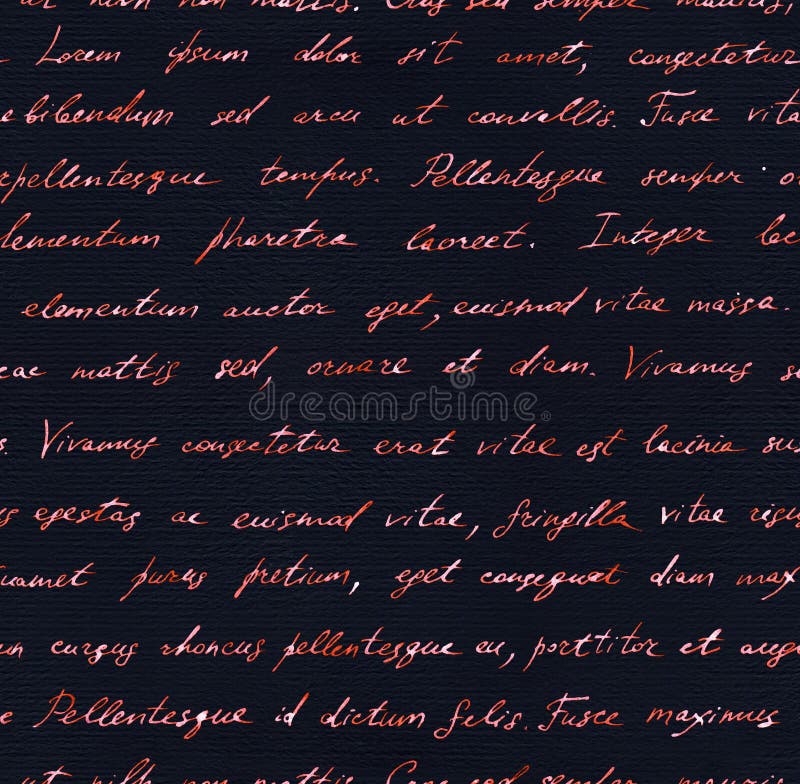 ut nibh non mattis. Cras sed semper mauris,
Lorem ipsum dolor sit amet, consectetur
bibendum sed arcu ut convallis. Fusce vita
rpellentesque tempus. Pellentesque semper o
lementum pharetra laoreet. Integer lec
elementum auctor eget, euismod vitae massa.
ac mattis sed, ornare et diam. Vivamus s
s. Vivamus consectetur erat vitae est lacinia sus
us egestas ac euismod vitae, fringilla vitae risus
uamet purus pretium, eget consequat diam max
un cursus rhoncus pellentesque eu, porttitor et aug
e Pellentesque id dictum felis. Fusce maximus
ut nibh non mattis. Cras sed semper mauris
dreamstime